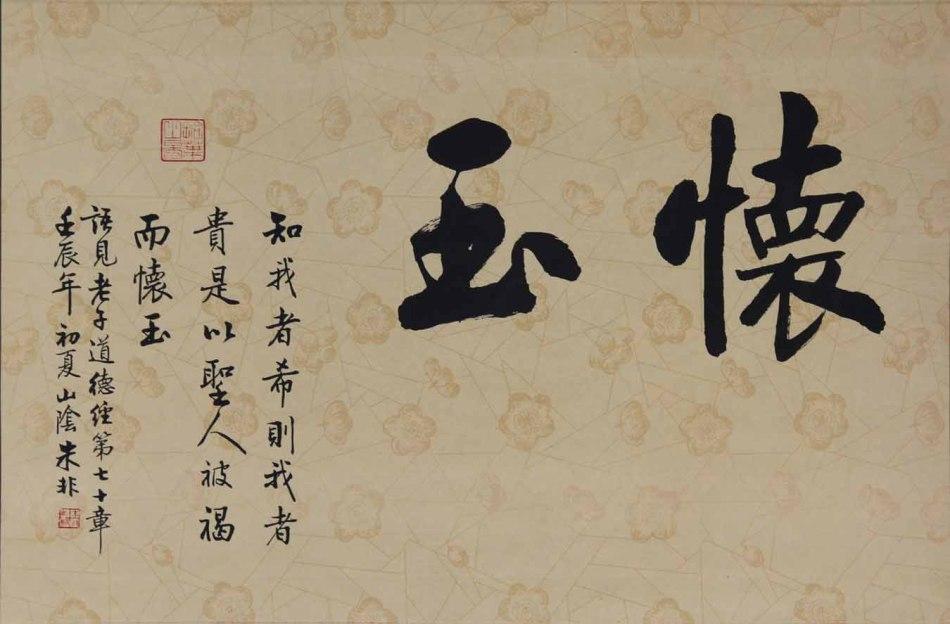 懷玉
知我者希則我者
貴是以聖人被褐
而懷玉
語見老子道德經第七十章
壬辰年初夏山陰朱非